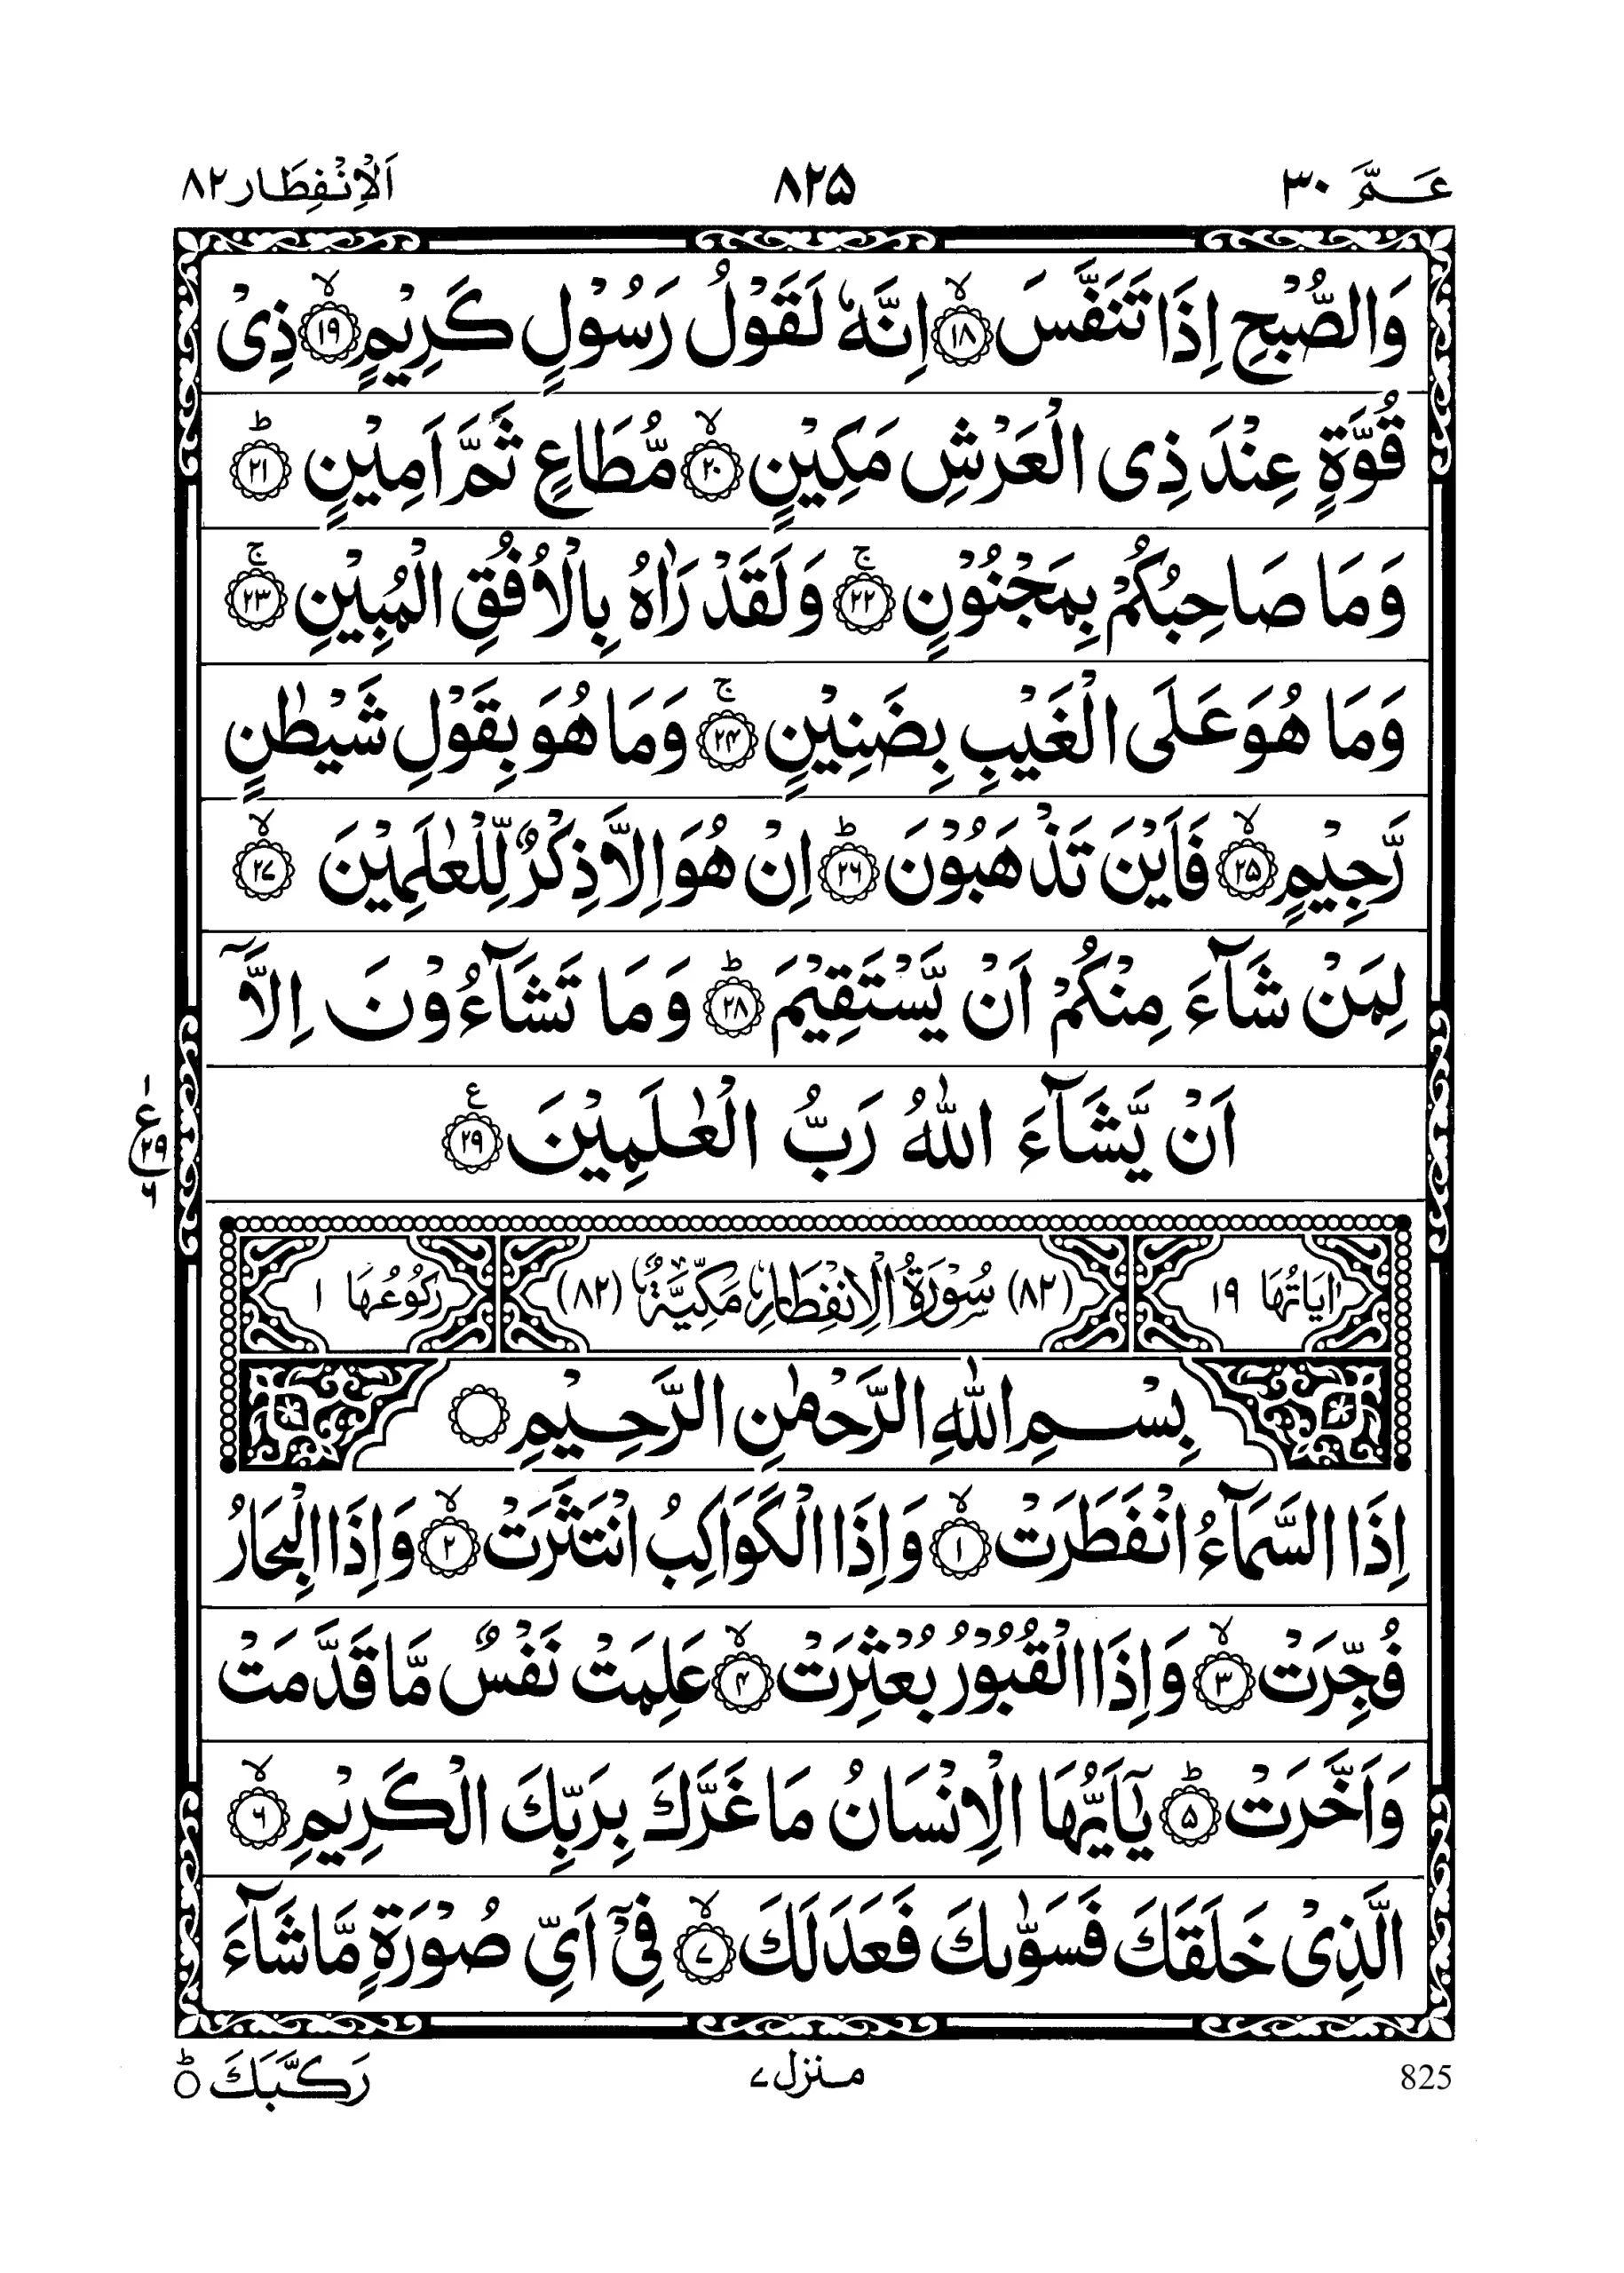 عَمَّ ٣٠
٨٢٥
اَلْاِنْفِطَار ٨٢
وَالصُّبْحِ اِذَا تَنَفَّسَ ۙ﴿١٨﴾ اِنَّهٗ لَقَوْلُ رَسُوْلٍ كَرِيْمٍ ۙ﴿١٩﴾ ذِىْ
قُوَّةٍ عِنْدَ ذِى الْعَرْشِ مَكِيْنٍ ۙ﴿٢٠﴾ مُّطَاعٍ ثَمَّ اَمِيْنٍ ؕ﴿٢١﴾
وَمَا صَاحِبُكُمْ بِمَجْنُوْنٍ ۚ﴿٢٢﴾ وَلَقَدْ رَاٰهُ بِالْاُفُقِ الْمُبِيْنِ ۚ﴿٢٣﴾
وَمَا هُوَ عَلَى الْغَيْبِ بِضَنِيْنٍ ۚ﴿٢٤﴾ وَمَا هُوَ بِقَوْلِ شَيْطٰنٍ
رَّجِيْمٍ ۙ﴿٢٥﴾ فَاَيْنَ تَذْهَبُوْنَ ؕ﴿٢٦﴾ اِنْ هُوَ اِلَّا ذِكْرٌ لِّلْعٰلَمِيْنَ ۙ﴿٢٧﴾
لِمَنْ شَآءَ مِنْكُمْ اَنْ يَّسْتَقِيْمَ ؕ﴿٢٨﴾ وَمَا تَشَآءُوْنَ اِلَّاۤ
اَنْ يَّشَآءَ اللّٰهُ رَبُّ الْعٰلَمِيْنَ ﴿٢٩﴾ ع
١
ع ٢٩
٦
اٰيَاتُهَا ١٩
(٨٢) سُوْرَةُ الْاِنْفِطَارِ مَكِّيَّةٌ (٨٢)
رُكُوْعُهَا ١
بِسْمِ اللّٰهِ الرَّحْمٰنِ الرَّحِيْمِ ۝
اِذَا السَّمَآءُ انْفَطَرَتْ ۙ﴿١﴾ وَاِذَا الْكَوَاكِبُ انْتَثَرَتْ ۙ﴿٢﴾ وَاِذَا الْبِحَارُ
فُجِّرَتْ ۙ﴿٣﴾ وَاِذَا الْقُبُوْرُ بُعْثِرَتْ ۙ﴿٤﴾ عَلِمَتْ نَفْسٌ مَّا قَدَّمَتْ
وَاَخَّرَتْ ؕ﴿٥﴾ يٰۤاَيُّهَا الْاِنْسَانُ مَا غَرَّكَ بِرَبِّكَ الْكَرِيْمِ ۙ﴿٦﴾
الَّذِىْ خَلَقَكَ فَسَوّٰىكَ فَعَدَلَكَ ۙ﴿٧﴾ فِىْۤ اَىِّ صُوْرَةٍ مَّا شَآءَ
825
منزل ٧
رَكَّبَكَ ؕ۝